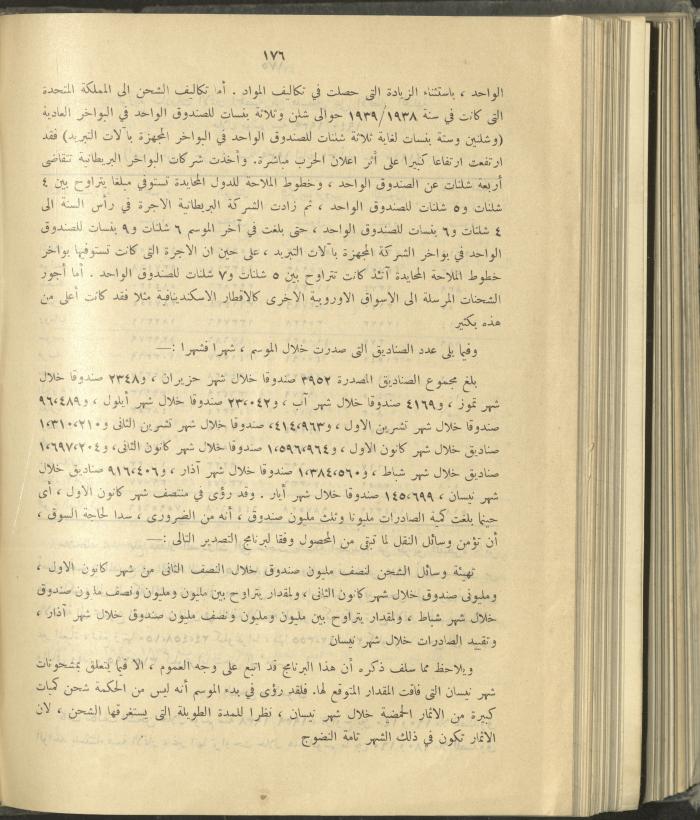 ١٧٦
الواحد ، باستثناء الزيادة التى حصلت في تكاليف المواد . أما تكاليف الشحن الى المملكة المتحدة
التى كانت في سنة ١٩٣٩/١٩٣٨ حوالى شلن وثلاثة بنسات للصندوق الواحد في البواخر العادية
(وشلنين وستة بنسات لغاية ثلاثة شلنات للصندوق الواحد في البواخر المجهزة بآلات التبريد) فقد
ارتفعت ارتفاعا كبيرا على أثر اعلان الحرب مباشرة. وأخذت شركات البواخر البريطانية تتقاضى
أربعة شلنات عن الصندوق الواحد ، وخطوط الملاحة للدول المحايدة تستوفي مبلغا يتراوح بين ٤
شلنات و٥ شلنات للصندوق الواحد ، ثم زادت الشركة البريطانية الاجرة في رأس السنة الى
٤ شلنات و٦ بنسات للصندوق الواحد ، حتى بلغت في آخر الموسم ٦ شلنات و٩ بنسات للصندوق
الواحد في بواخر الشركة المجهزة بآلات التبريد ، على حين ان الاجرة التى كانت تستوفيها بواخر
خطوط الملاحة المحايدة آنئذ كانت تتراوح بين ٥ شلنات و٧ شلنات للصندوق الواحد . أما أجور
الشحنات المرسلة الى الاسواق الاوروبية الاخرى كالاقطار الاسكندينافية مثلا فقد كانت أعلى من
هذه بكثير
وفيما يلى عدد الصناديق التى صدرت خلال الموسم ، شهرا فشهرا :—
بلغ مجموع الصناديق المصدرة ٣٩٥٢ صندوقا خلال شهر حزيران ، و٢٣٤٨ صندوقا خلال
شهر تموز ، و٤١٦٩ صندوقا خلال شهر آب ، و٢٣،٠٤٢ صندوقا خلال شهر أيلول ، و٩٦،٤٨٩
صندوقا خلال شهر تشرين الاول ، و٤١٤،٩٦٣ صندوقا خلال شهر تشرين الثانى و١،٣١٠،٢١٠
صناديق خلال شهر كانون الاول ، و١،٥٩٦،٩٦٤ صندوقا خلال شهر كانون الثانى، و١،٦٩٧،٢٠٤
صناديق خلال شهر شباط ، و١،٣٨٤،٥٦٠ صندوقا خلال شهر آذار ، و٩١٦،٤٠٦ صناديق خلال
شهر نيسان ، و١٤٥،٦٩٩ صندوقا خلال شهر أيار . وقد رؤى في منتصف شهر كانون الاول ، أى
حينما بلغت كمية الصادرات مليونا وثلث مليون صندوق ، أنه من الضرورى ، سدا لحاجة السوق ،
أن تؤمن وسائل النقل لما تبقى من المحصول وفقا لبرنامج التصدير التالى :—
تهيئة وسائل الشحن لنصف مليون صندوق خلال النصف الثانى من شهر كانون الاول ،
ومليونى صندوق خلال شهر كانون الثانى ، ولمقدار يتراوح بين مليون ومليون ونصف مليون صندوق
خلال شهر شباط ، ولمقدار يتراوح بين مليون ومليون ونصف مليون صندوق خلال شهر آذار ،
وتقييد الصادرات خلال شهر نيسان
ويلاحظ مما سلف ذكره أن هذا البرنامج قد اتبع على وجه العموم ، الا فيما يتعلق بمشحونات
شهر نيسان التى فاقت المقدار المتوقع لها. فلقد رؤى في بدء الموسم أنه ليس من الحكمة شحن كميات
كبيرة من الاثمار الحمضية خلال شهر نيسان ، نظرا للمدة الطويلة التى يستغرقها الشحن ، لان
الاثمار تكون في ذلك الشهر تامة النضوج